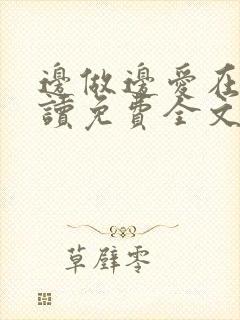 邊做邊愛在
讀免費全文
草壁零